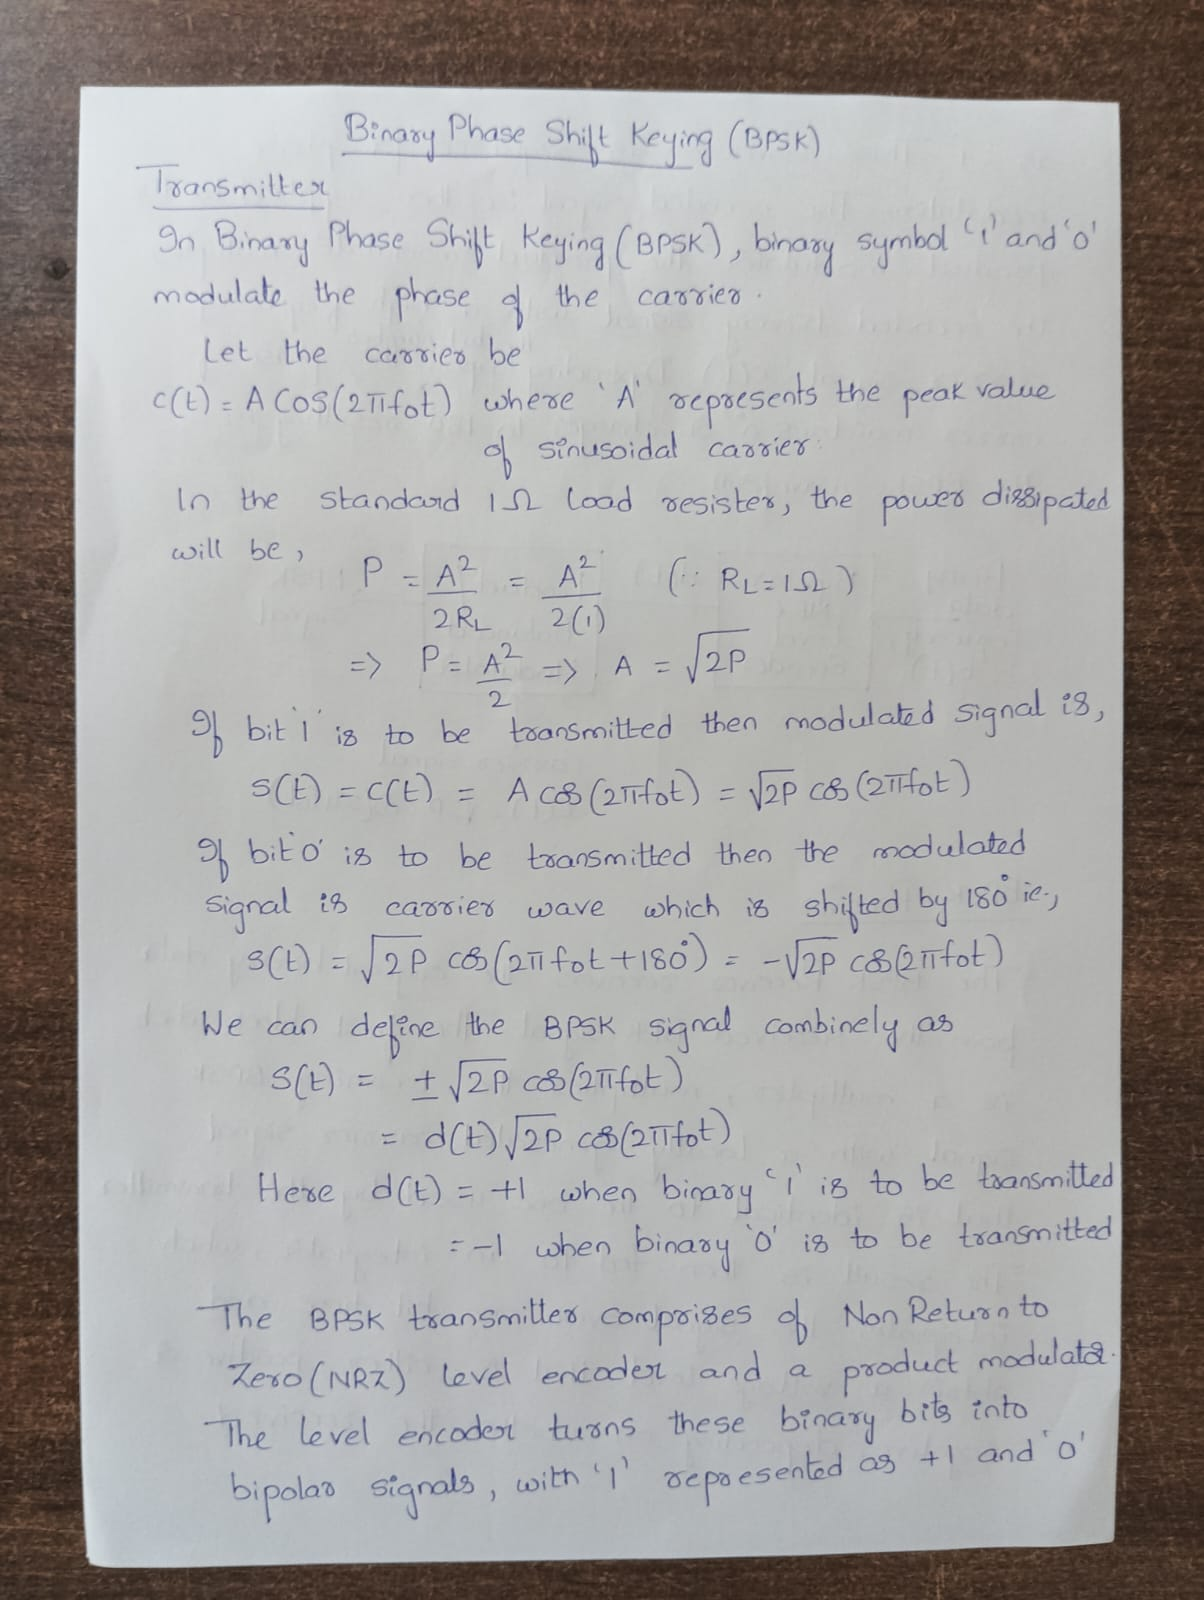 Binary Phase Shift Keying (BPSK)
Transmitter
In Binary Phase Shift Keying (BPSK), binary symbol '1' and '0'
modulate the phase of the carrier.
Let the carrier be
c(t) = A COS(2πfot) where 'A' represents the peak value
of sinusoidal carrier.
In the standard 1Ω load resister, the power dissipated
will be,
P = A²/2RL = A²/2(1) (∵ RL = 1Ω)
=> P = A²/2 => A = √2P
If bit '1' is to be transmitted then modulated signal is,
s(t) = c(t) = A cos(2πfot) = √2P cos(2πfot)
If bit '0' is to be transmitted then the modulated
signal is carrier wave which is shifted by 180° ie.,
s(t) = √2P cos(2πfot+180°) = -√2P cos(2πfot)
We can define the BPSK signal combinely as
s(t) = ± √2P cos(2πfot)
= d(t)√2P cos(2πfot)
Here d(t) = +1 when binary '1' is to be transmitted
= -1 when binary '0' is to be transmitted
The BPSK transmitter comprises of Non Return to
Zero (NRZ) level encoder and a product modulator.
The level encoder turns these binary bits into
bipolar signals, with '1' represented as +1 and '0'